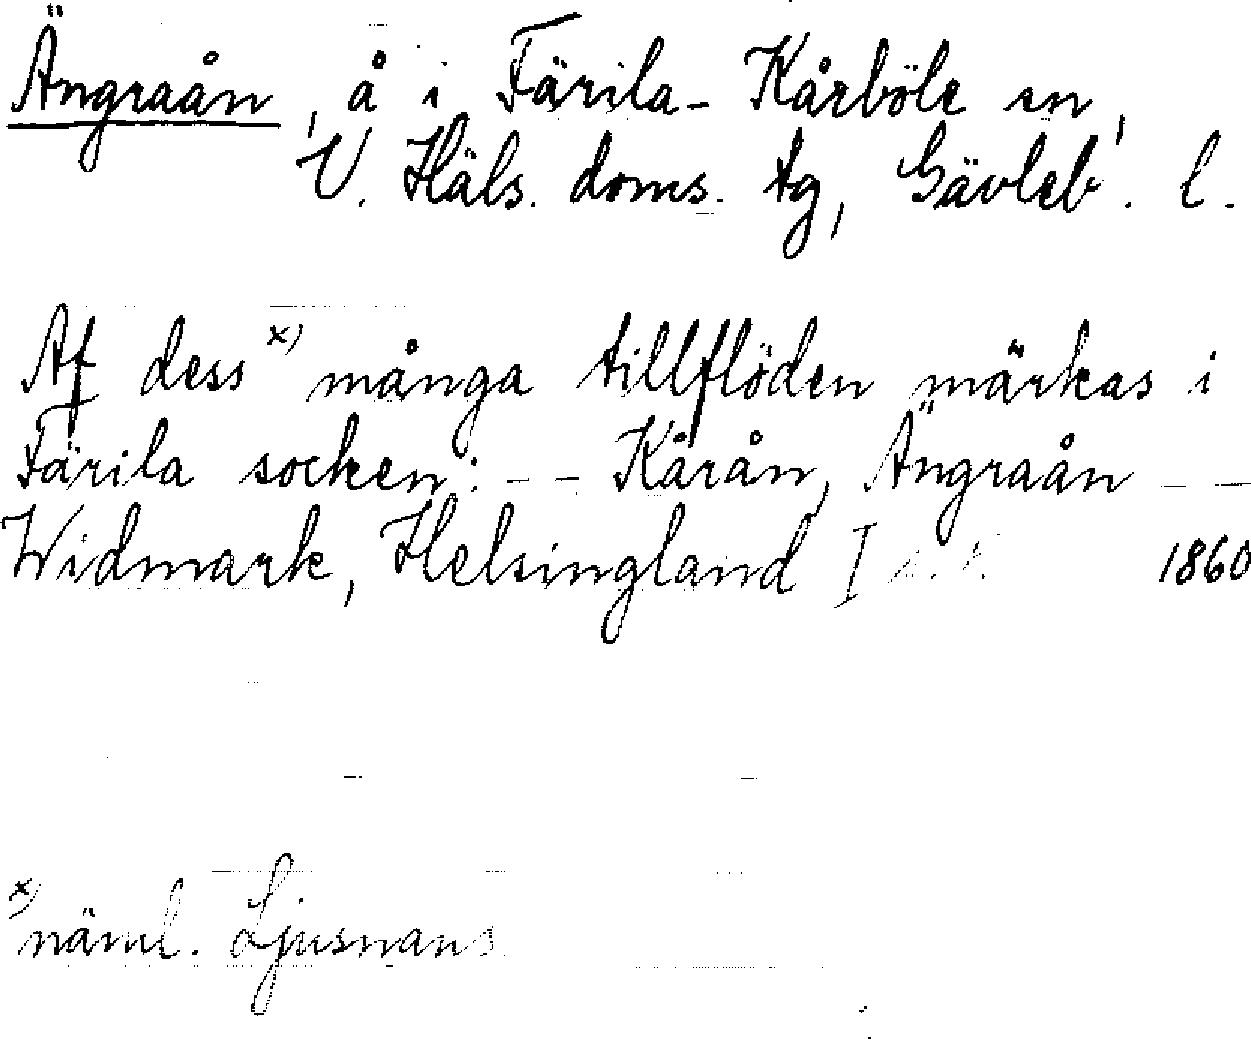 Ängraån, å i Färila-Kårböle sn,
V. Häls. doms. tg, Gävleb. l.
Af dess x) många tillflöden märkas i
Färila socken: - - Kårån, Ängraån - -
Widmark, Helsingland I 1860
x) näml. Ljusnans